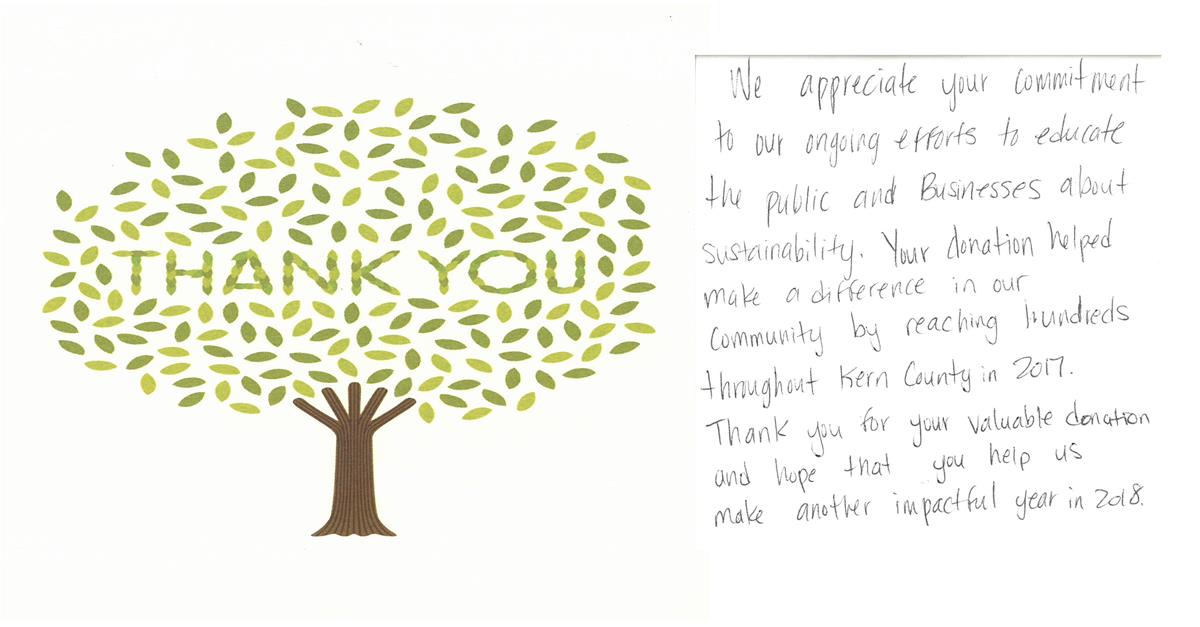 THANK YOU
We appreciate your commitment
to our ongoing efforts to educate
the public and Businesses about
sustainability. Your donation helped
make a difference in our
Community by reaching hundreds
throughout Kern County in 2017.
Thank you for your valuable donation
and hope that you help us
make another impactful year in 2018.